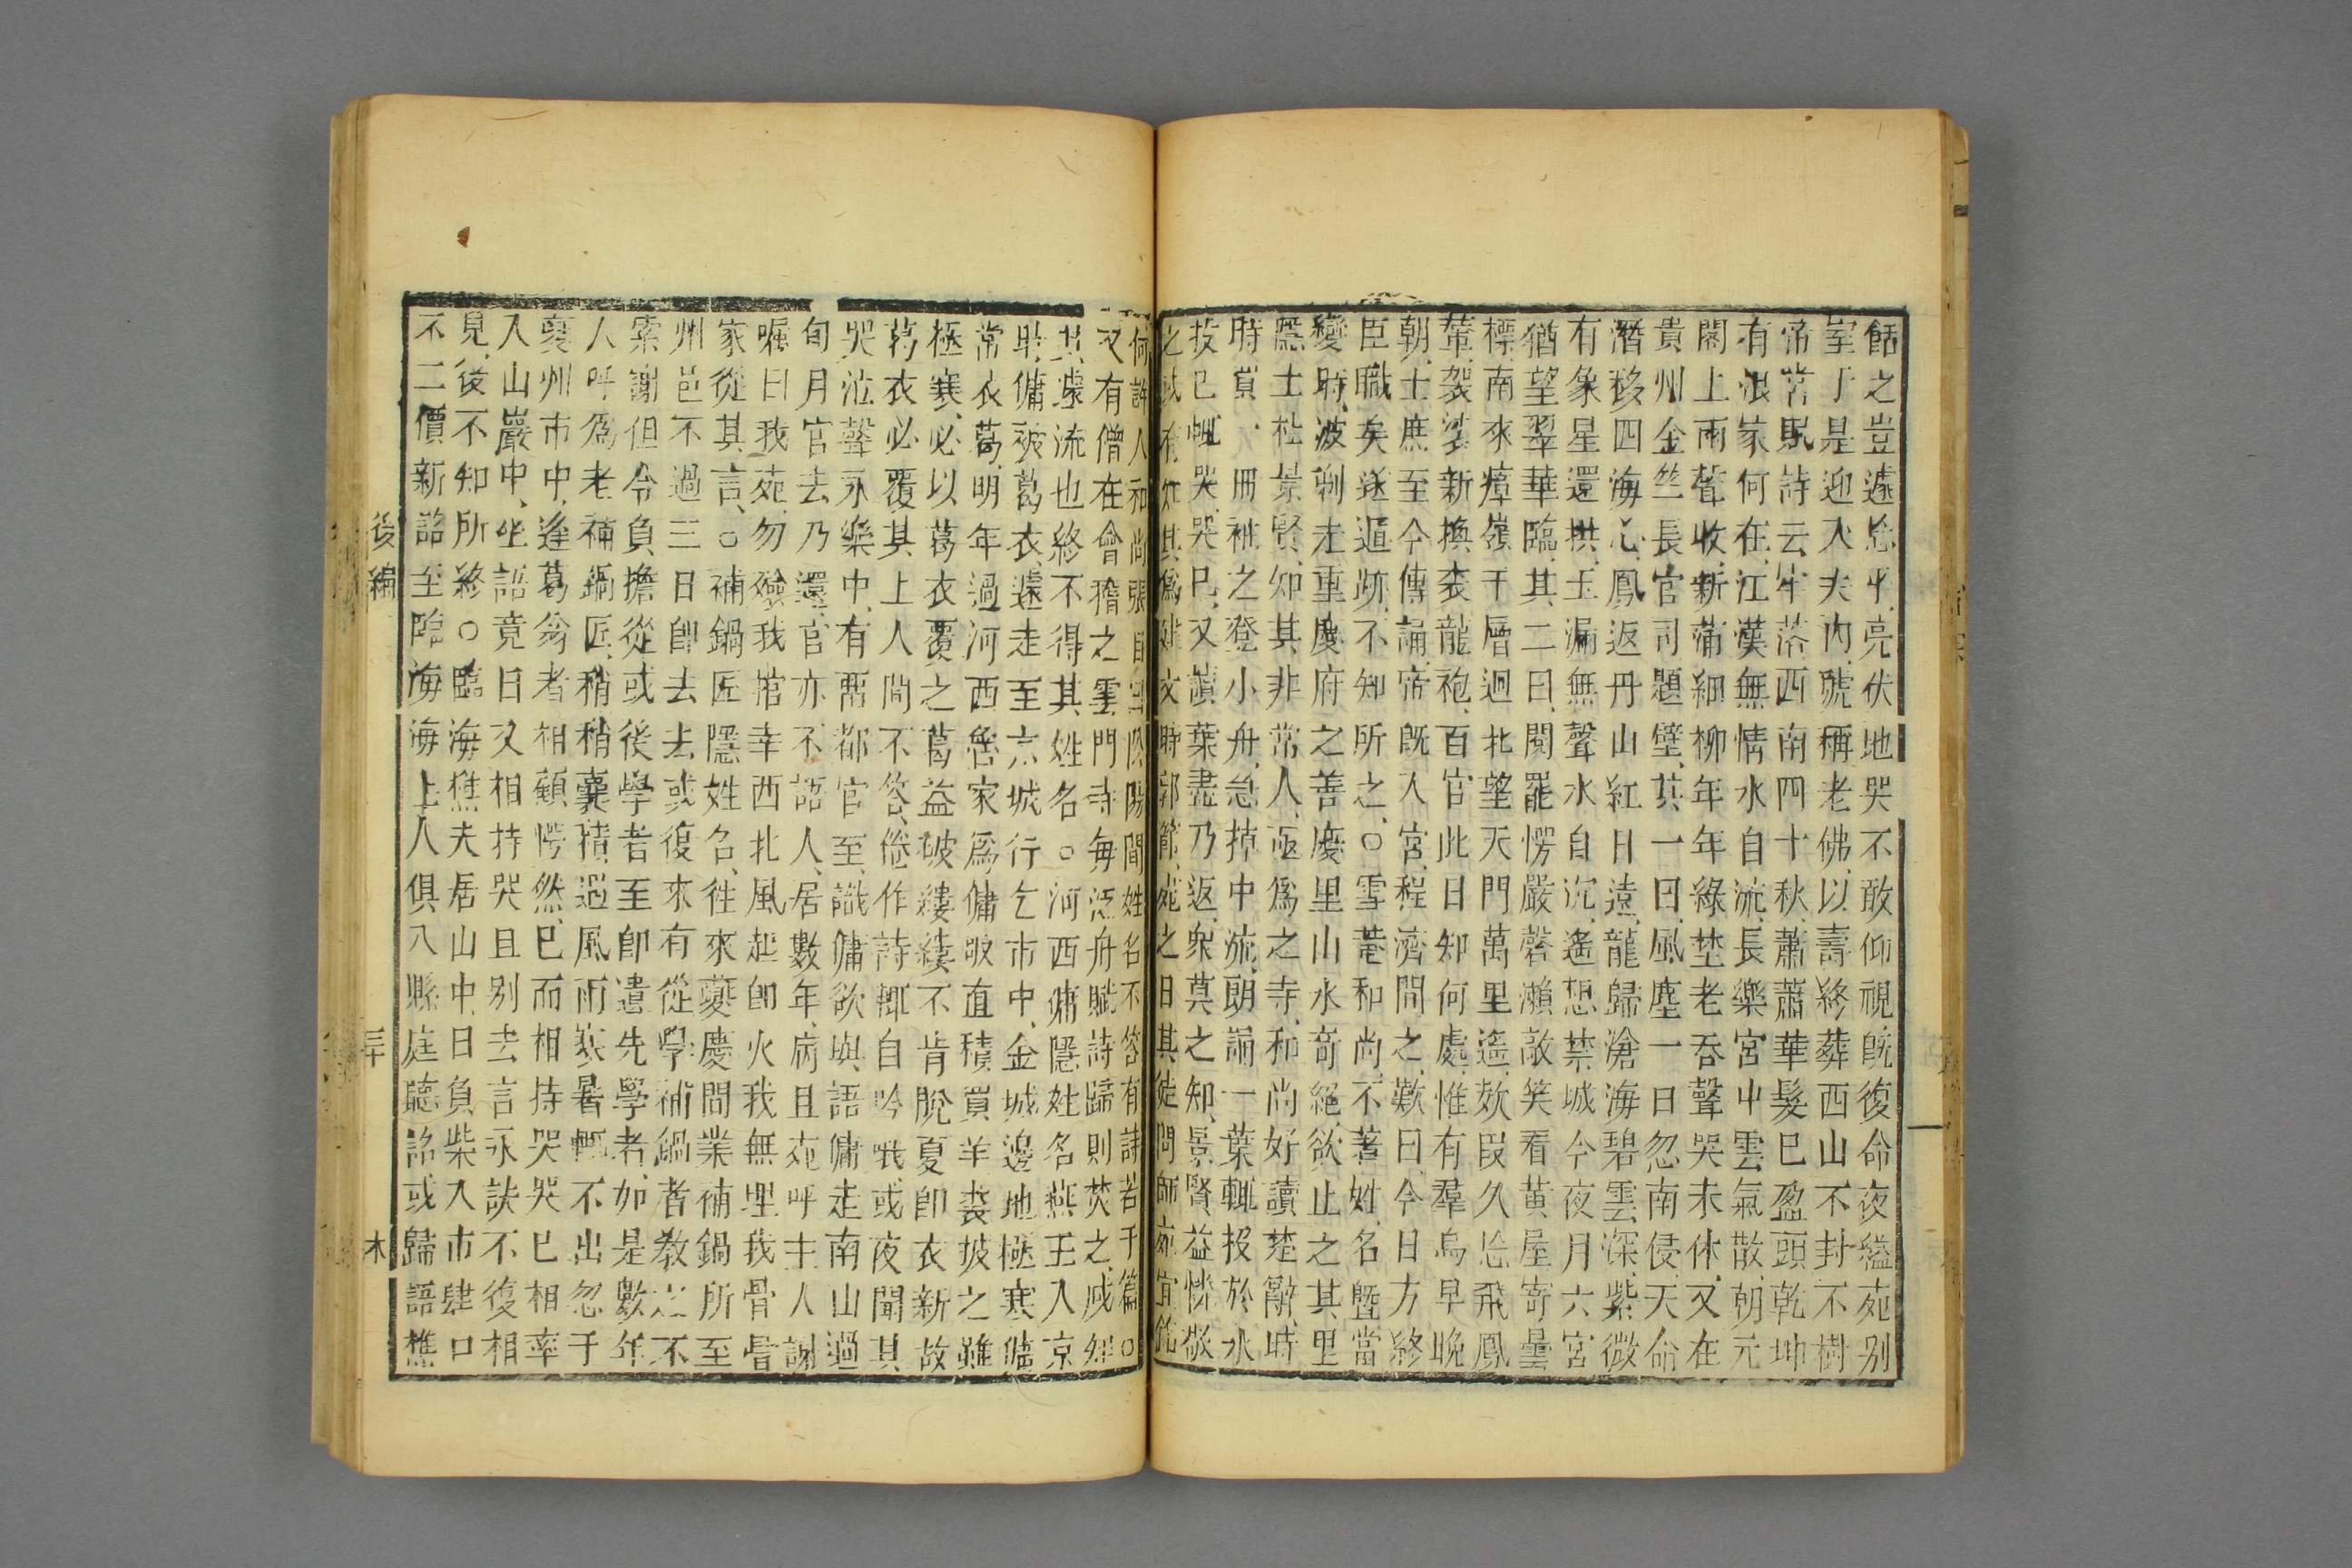 餂之豈遽忘乎亮伏地哭不敢仰視旣復命夜縊死别
室于是迎入大内號稱老佛以壽終葬西山不封不樹
帝嘗賦詩云牢落西南四十秋蕭蕭華髮已盈頭乾坤
有恨家何在江漢無情水自流長樂宮中雲氣散朝元
閣上雨聲收新蒲細柳年年綠埜老吞聲哭未休又在
貴州金竺長官司題壁其一曰風塵一日忽南侵天命
潛移四海心鳳返丹山紅日遠龍歸滄海碧雲深紫微
有象星還拱玉漏無聲水自沉遙想禁城今夜月六宮
猶望翠華臨其二曰閱罷愣嚴磬懶敲笑看黃屋寄曇
標南來瘴嶺千層迥北望天門萬里遙欵叚久忘飛鳳
輦袈裟新換衮龍袍百官此日知何處惟有羣烏早晚
朝士庶至今傳誦帝旣入宮程濟聞之歎曰今日方終
臣職矣遂遁跡不知所之○雪菴和尚不著姓名曁當
變時披剃走重慶府之善慶里山水奇絕欲止之其里
隱士杜景賢知其非常人亟為之寺和尚好讀楚辭時
時買一冊袖之登小舟急掉中流朗誦一葉輒投於水
投已輒哭哭已又讀葉盡乃返衆莫之知景賢益憐敬
之或有知其為建文時郭節死之日其徒問師死宜銘
何許人和尚張目曰松陽問姓名不答有詩若干篇○
又有僧在會稽之雲門寺每泛舟賦詩歸則焚之咸知
其遜流也終不得其姓名○河西傭隱姓名燕王入京
時傭被葛衣遽走至六城行乞市中金城邊地極寒傭
常衣葛明年過河西魯家為傭取直積買羊裘披之雖
極寒必以葛衣覆之葛益破縷縷不肯脫夏卽衣新故
葛衣必覆其上人問不答倦作詩輒自吟哦或夜聞其
哭泣聲永樂中有西都官至識傭欲與語傭走南山過
旬月官去乃還官亦不語人居數年病且死呼主人謝
囑曰我死勿殮我棺幸西北風起卽火我無埋我骨魯
家從其言○補鍋匠隱姓名徃來夔慶間業補鍋所至
州邑不過三日卽去去或復來有從學補鍋者教之不
索謝但令負擔從或後學者至卽遣先學者如是數年
人呼為老補鍋匠稍稍囊積遇風雨寒暑輒不出忽于
夔州市中逢葛翁者相顧愕然已而相持哭哭已相率
入山巖中坐語竟日又相持哭且别去言永訣不復相
見後不知所終○臨海樵夫居山中日負柴入市肆口
不二價新詔至臨海海上人俱入縣庭聽詔或歸語樵
後編
三十
木